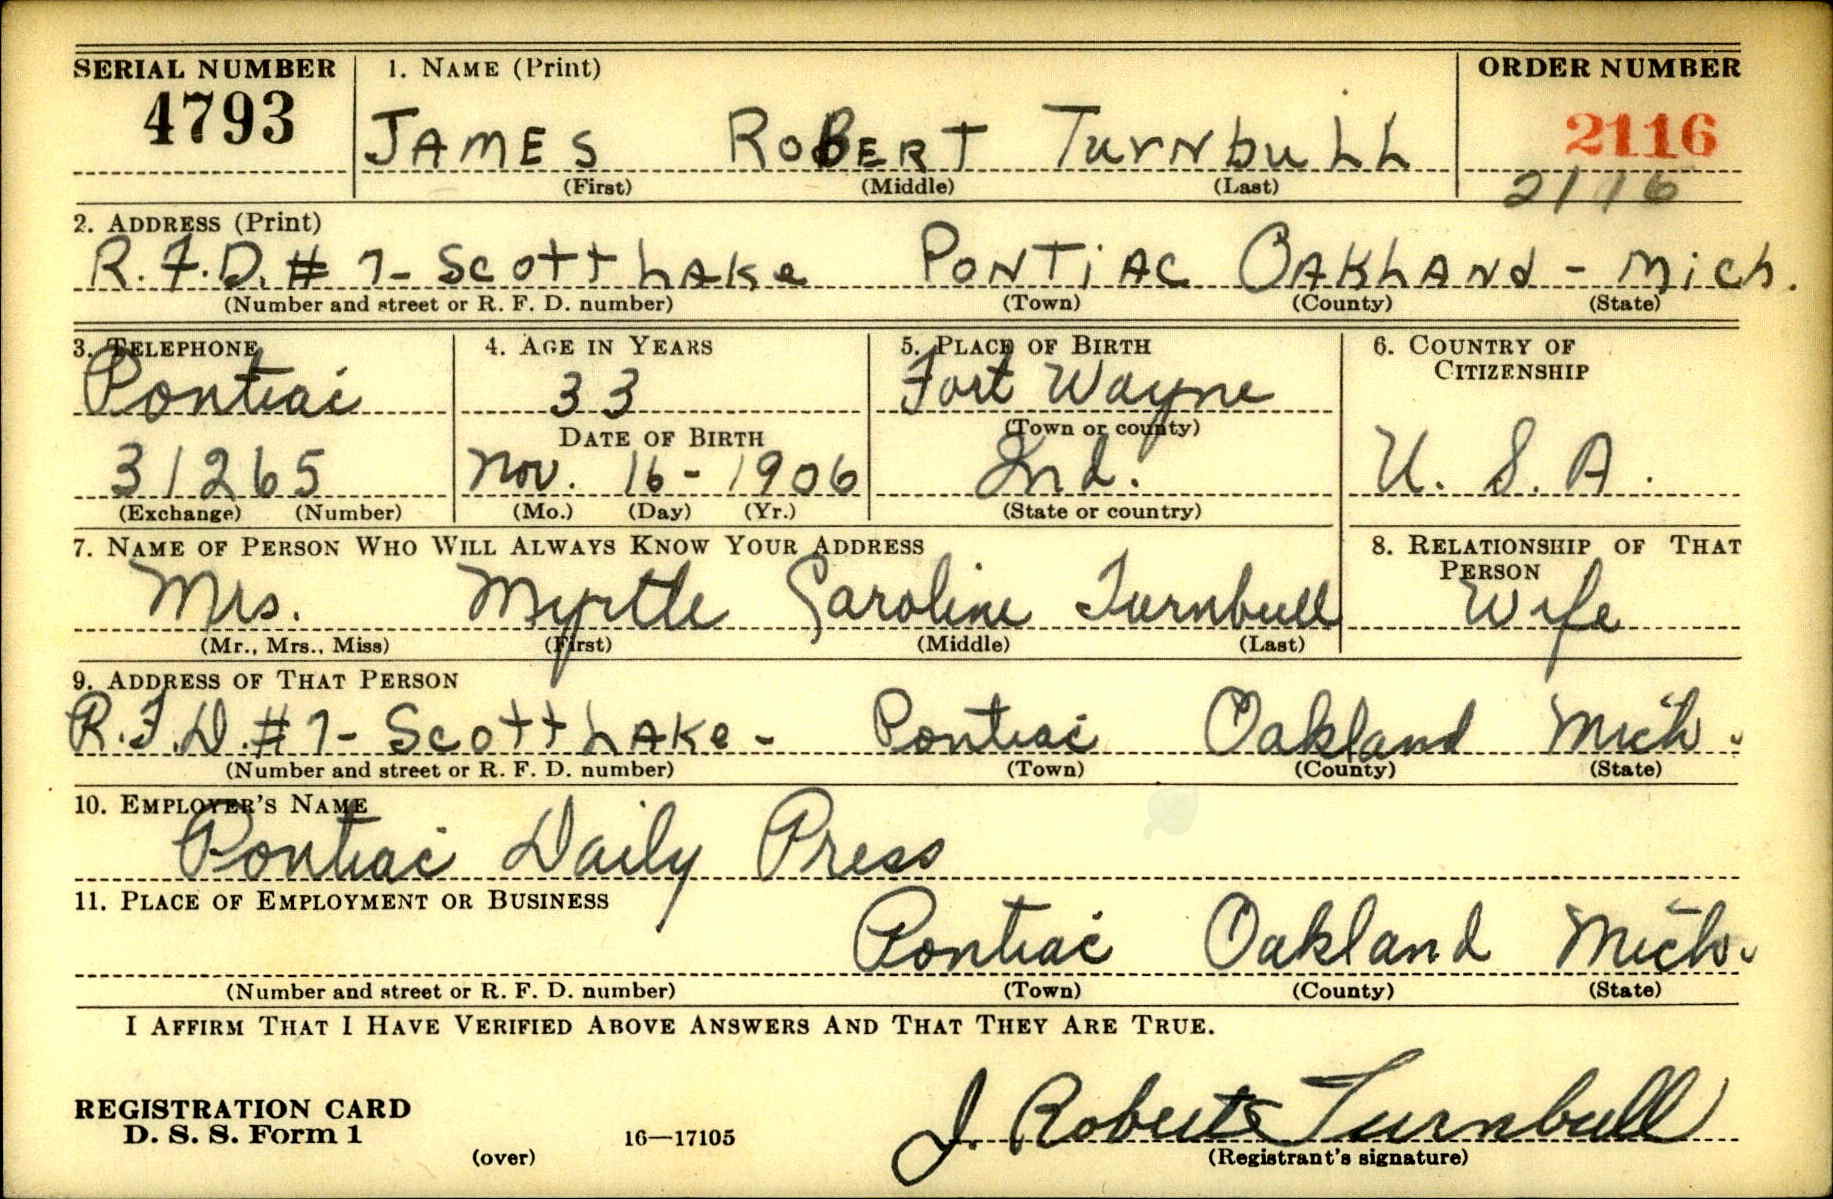 SERIAL NUMBER 1. NAME (Print) ORDER NUMBER
4793 JAMES ROBERT TurNbuLL 2116
(First) (Middle) (Last) 2116
2. ADDRESS (Print)
R.F.D. # 7 - Scott LAKe PONTiAC OAKLANd - Mich.
(Number and street or R. F. D. number) (Town) (County) (State)
3. TELEPHONE 4. AGE IN YEARS 5. PLACE OF BIRTH 6. COUNTRY OF CITIZENSHIP
Pontiac 33 Fort Wayne
DATE OF BIRTH (Town or county)
31265 Nov. 16 - 1906 Ind. U. S. A.
(Exchange) (Number) (Mo.) (Day) (Yr.) (State or country)
7. NAME OF PERSON WHO WILL ALWAYS KNOW YOUR ADDRESS 8. RELATIONSHIP OF THAT PERSON
Mrs. Myrtle Caroline Turnbull Wife
(Mr., Mrs., Miss) (First) (Middle) (Last)
9. ADDRESS OF THAT PERSON
R.F.D. # 7 - Scott LAKe - Pontiac Oakland Mich.
(Number and street or R. F. D. number) (Town) (County) (State)
10. EMPLOYER'S NAME
Pontiac Daily Press
11. PLACE OF EMPLOYMENT OR BUSINESS
Pontiac Oakland Mich.
(Number and street or R. F. D. number) (Town) (County) (State)
I AFFIRM THAT I HAVE VERIFIED ABOVE ANSWERS AND THAT THEY ARE TRUE.
REGISTRATION CARD
D. S. S. Form 1 16—17105 J. Robert Turnbull
(over) (Registrant's signature)